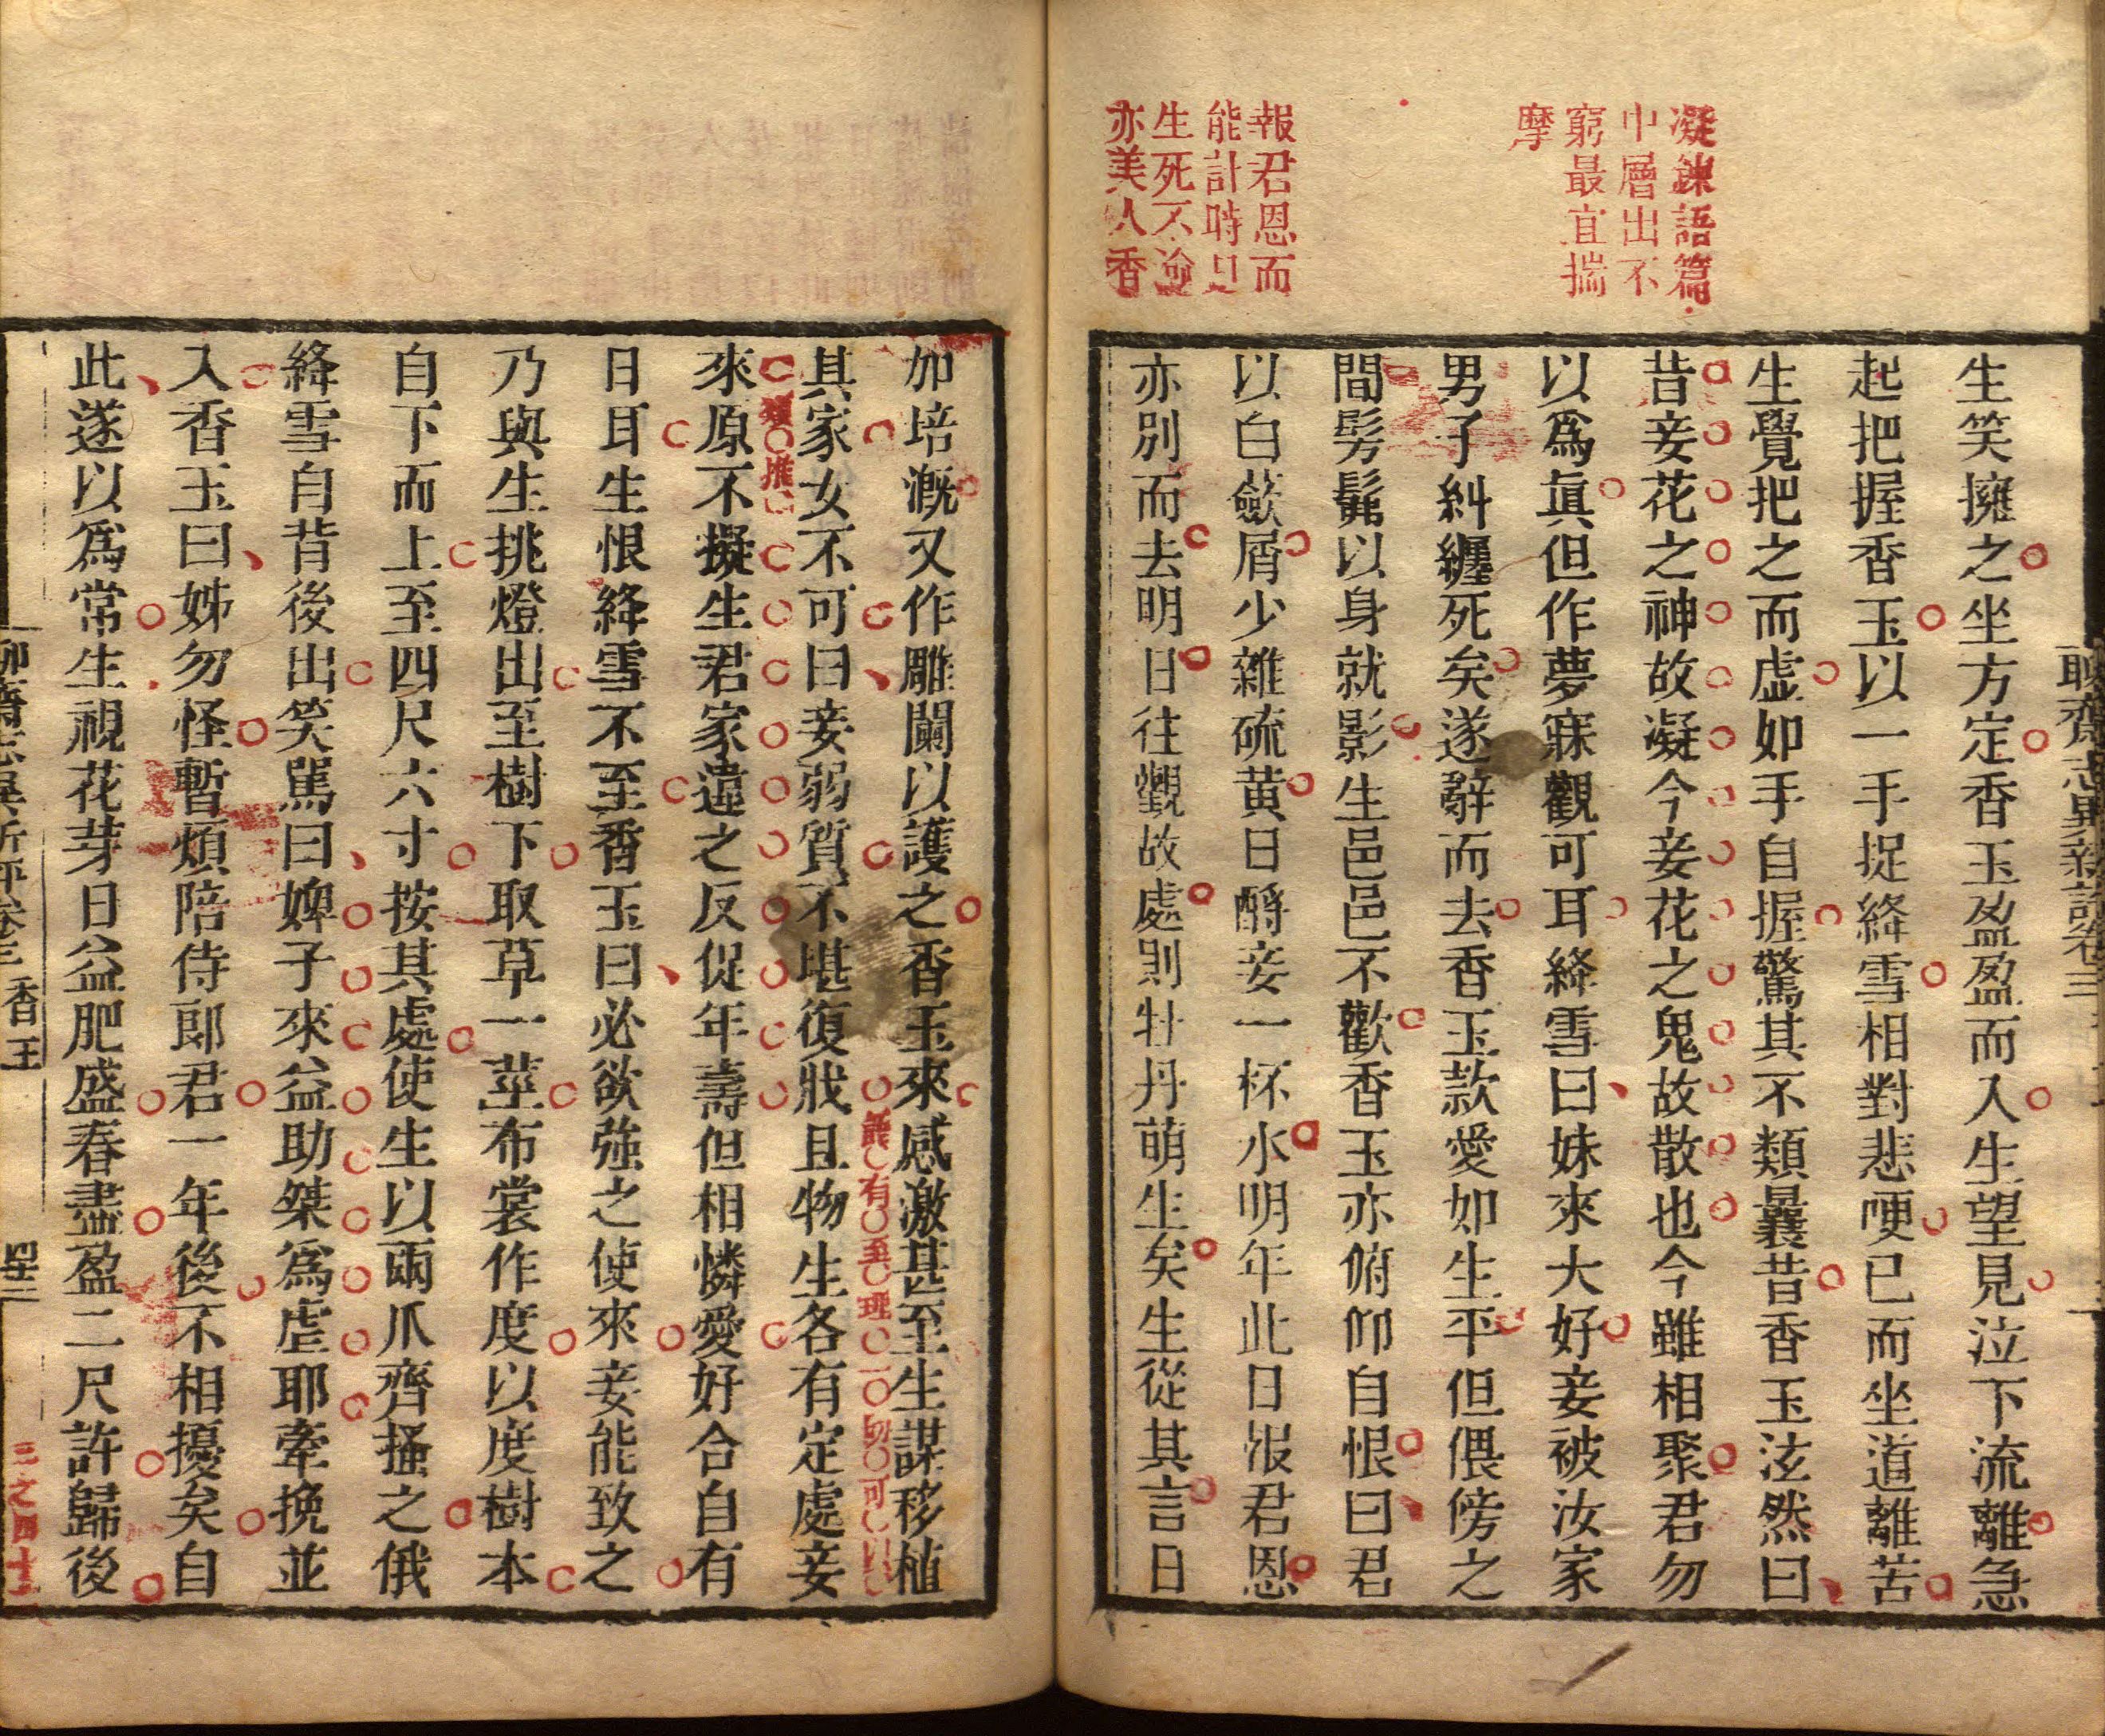 聊齋志異新評卷三
凝鍊語篇
中層出不
窮最宜揣
摩
報君恩而
能計時日
生死不渝
亦美人香
生笑擁之坐方定香玉盈盈而入生望見泣下流離急
起把握香玉以一手捉絳雪相對悲哽已而坐道離苦
生覺把之而虛如手自握驚其不類曩昔香玉泫然曰
昔妾花之神故凝今妾花之鬼故散也今雖相聚君勿
以爲眞但作夢寐觀可耳絳雪曰妹來大好妾被汝家
男子糾纏死矣遂辭而去香玉款愛如生平但偎傍之
間髣髴以身就影生邑邑不歡香玉亦俯仰自恨曰君
以白蘞屑少雜硫黃日酹妾一杯水明年此日报君恩
亦別而去明日往觀故處則牡丹萌生矣生從其言日
加培漑又作雕闌以護之香玉來感激甚至生謀移植
其家女不可曰妾弱質不堪復戕且物生各有定處妾
護有至理一切可以
來原不擬生君家違之反促年壽但相憐愛好合自有
類推
日耳生恨絳雪不至香玉曰必欲強之使來妾能致之
乃與生挑燈出至樹下取草一莖布裳作度以度樹本
自下而上至四尺六寸按其處使生以兩爪齊搔之俄
絳雪自背後出笑罵曰婢子來益助桀爲虐耶牽挽並
入香玉曰姊勿怪暫煩陪侍郎君一年後不相擾矣自
此遂以爲常生視花芽日益肥盛春盡盈二尺許歸後
聊齋志異新評卷三 香玉
三之四十二